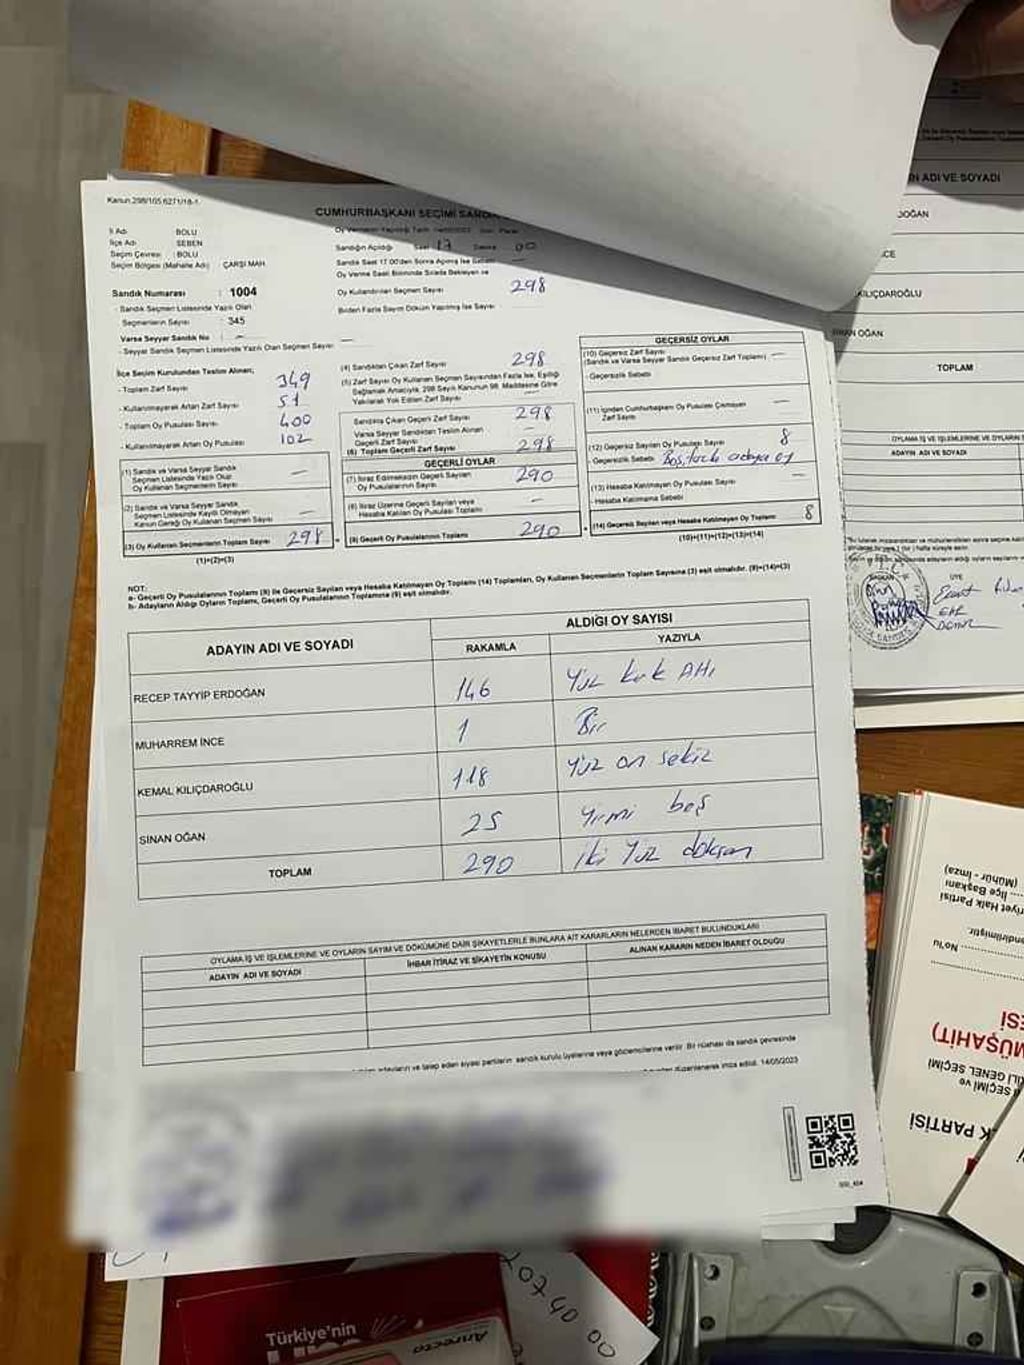 Kanun 298/105 6271/18-1
CUMHURBAŞKANI SEÇİMİ SANDIK
İl Adı BOLU
İlçe Adı SEBEN
Seçim Çevresi : BOLU
Seçim Bölgesi (Mahalle Adı) ÇARŞI MAH.
Sandık Numarası : 1004
- Sandık Seçmen Listesinde Yazılı Olan
Seçmenlerin Sayısı : 345
Varsa Seyyar Sandık No : —
- Seyyar Sandık Seçmen Listesinde Yazılı Olan Seçmen Sayısı : —
Sandığın Açıldığı Saat 17 00
Sandık Saat 17.00'den Sonra Açılmış İse
Oy Verme Saati Bitiminde Sırada Bekleyen ve
Oy Kullandırılan Seçmen Sayısı 298
Birden Fazla Sayım Döküm Yapılmış İse Sayısı
İlçe Seçim Kurulundan Teslim Alınan;
- Toplam Zarf Sayısı 349
- Kullanılmayarak Artan Zarf Sayısı 51
- Toplam Oy Pusulası Sayısı 400
- Kullanılmayarak Artan Oy Pusulası 102
(1) Sandık ve Varsa Seyyar Sandık
Seçmen Listesinde Yazılı Olup
Oy Kullanan Seçmen Sayısı —
(2) Sandık ve Varsa Seyyar Sandık
Seçmen Listesinde Kayıtlı Olmayan
Kanun Gereği Oy Kullanan Seçmen Sayısı —
(3) Oy Kullanan Seçmenlerin Toplam Sayısı 298
(1)+(2)=(3)
(4) Sandıktan Çıkan Zarf Sayısı 298
(5) Zarf Sayısı Oy Kullanan Seçmen Sayısından Fazla İse, Eşitliği
Sağlamak Amacıyla, 298 Sayılı Kanunun 98. Maddesine Göre
Yakılarak Yok Edilen Zarf Sayısı —
Sandıkta Çıkan Geçerli Zarf Sayısı 298
Varsa Seyyar Sandıktan Teslim Alınan
Geçerli Zarf Sayısı —
(6) Toplam Geçerli Zarf Sayısı 298
GEÇERLİ OYLAR
(7) İtiraz Edilmeksizin Geçerli Sayılan
Oy Pusulalarının Sayısı 290
(8) İtiraz Üzerine Geçerli Sayılan veya
Hesaba Katılan Oy Pusulası Toplamı —
(9) Geçerli Oy Pusulalarının Toplamı 290
GEÇERSİZ OYLAR
(10) Geçersiz Zarf Sayısı
(Sandık ve Varsa Seyyar Sandık Geçersiz Zarf Toplamı) —
- Geçersizlik Sebebi
(11) İçinden Cumhurbaşkanı Oy Pusulası Çıkmayan
Zarf Sayısı —
(12) Geçersiz Sayılan Oy Pusulası Sayısı 8
- Geçersizlik Sebebi Boş, adaya oy
(13) Hesaba Katılmayan Oy Pusulası Sayısı —
- Hesaba Katılmama Sebebi
(14) Geçersiz Sayılan veya Hesaba Katılmayan Oy Toplamı 8
(10)+(11)+(12)+(13)=(14)
NOT:
a- Geçerli Oy Pusulasının Toplamı (9) ile Geçersiz Sayılan veya Hesaba Katılmayan Oy Toplamı (14) Toplamları, Oy Kullanan Seçmenlerin Toplam Sayısına (3) eşit olmalıdır. (9)+(14)=(3)
b- Adayların Aldığı Oyların Toplamı, Geçerli Oy Pusulalarının Toplamına (9) eşit olmalıdır.
ADAYIN ADI VE SOYADI ALDIĞI OY SAYISI
RAKAMLA YAZIYLA
RECEP TAYYİP ERDOĞAN 146 Yüz kırk Altı
MUHARREM İNCE 1 Bir
KEMAL KILIÇDAROĞLU 118 Yüz on sekiz
SİNAN OĞAN 25 Yirmi beş
TOPLAM 290 İki Yüz doksan
OYLAMA İŞ VE İŞLEMLERİNE VE OYLARIN SAYIM VE DÖKÜMÜNE DAİR ŞİKAYETLERLE BUNLARA AİT KARARLARIN NELERDEN İBARET BULUNDUKLARI
ADAYIN ADI VE SOYADI İHBAR İTİRAZ VE ŞİKAYETİN KONUSU ALINAN KARARIN NEDEN İBARET OLDUĞU
adayların ve talep eden siyasi partilerin sandık kurulu üyelerine veya gözlemcilerine verilir. Bir nüshası da sandık çevresinde
düzenlenerek imza edildi. 14/05/2023
N ADI VE SOYADI
DOĞAN
CE
KILIÇDAROĞLU
OĞAN
TOPLAM
OYLAMA İŞ VE İŞLEMLERİNE VE OYLARIN
ADAYIN ADI VE SOYADI
BAŞKAN
ÜYE
(Mühür - İmza)
İlçe Başkanı
riyet Halk Partisi
No'lu
MÜŞAHİT)
K PARTİSİ
Türkiye'nin